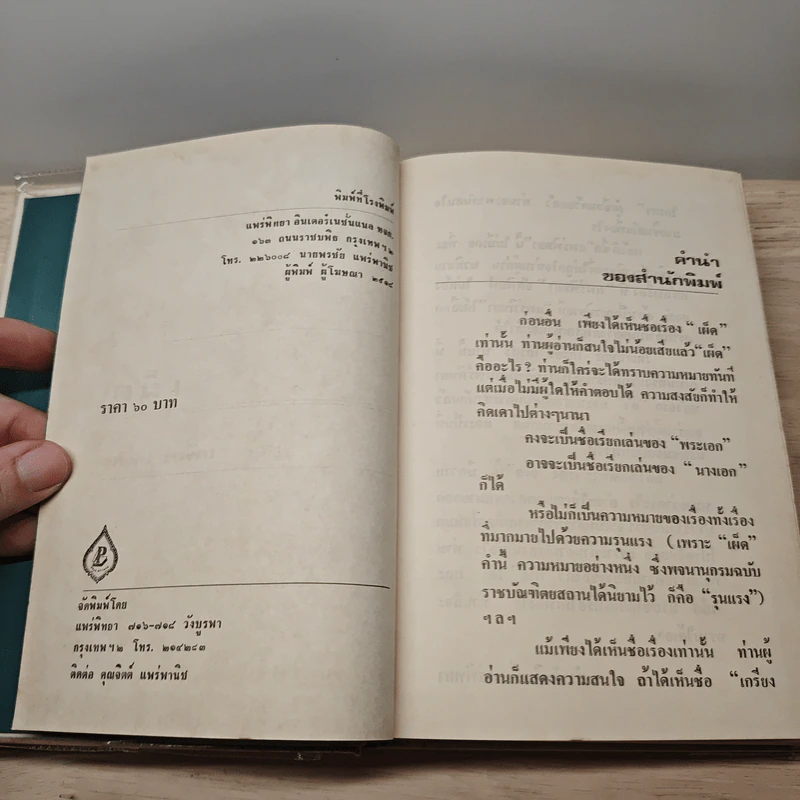 พิมพ์ที่โรงพิมพ์
แพร่พิทยา อินเตอร์เนชั่นแนล หจก.
๑๖๓ ถนนราชบพิธ กรุงเทพฯ ๒
โทร. ๒๒๖๐๐๘ นายพรชัย แพร่พานิช
ผู้พิมพ์ ผู้โฆษณา ๒๕๑๘
ราคา ๖๐ บาท
จัดพิมพ์โดย
แพร่พิทยา ๗๑๖-๗๑๘ วังบูรพา
กรุงเทพฯ ๒ โทร. ๒๑๔๒๘๓
ติดต่อ คุณจิตต์ แพร่พานิช
คำนำ
ของสำนักพิมพ์
ก่อนอื่น เพียงได้เห็นชื่อเรื่อง “ เผ็ด”
เท่านั้น ท่านผู้อ่านก็สนใจไม่น้อยเสียแล้ว“เผ็ด”
คืออะไร ? ท่านก็ใคร่จะได้ทราบความหมายทันที
แต่เมื่อไม่มีผู้ใดให้คำตอบได้ ความสงสัยก็ทำให้
คิดเดาไปต่างๆนานา
คงจะเป็นชื่อเรียกเล่นของ “พระเอก”
อาจจะเป็นชื่อเรียกเล่นของ “ นางเอก”
ก็ได้
หรือไม่ก็เป็นความหมายของเรื่องทั้งเรื่อง
ที่มากมายไปด้วยความรุนแรง (เพราะ “เผ็ด”
คำนี้ ความหมายอย่างหนึ่ง ซึ่งพจนานุกรมฉบับ
ราชบัณฑิตยสถานได้นิยามไว้ ก็คือ “รุนแรง”)
ฯลฯ
แม้เพียงได้เห็นชื่อเรื่องเท่านั้น ท่านผู้
อ่านก็แสดงความสนใจ ถ้าได้เห็นชื่อ “เกรียง